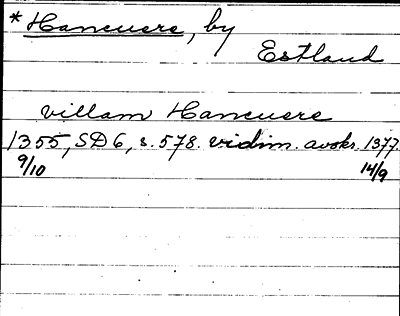 * Hancuere, by
Estland
villam Hancuere
1355, SD 6, s. 578. vidim. avskr. 1377
9/10 14/9